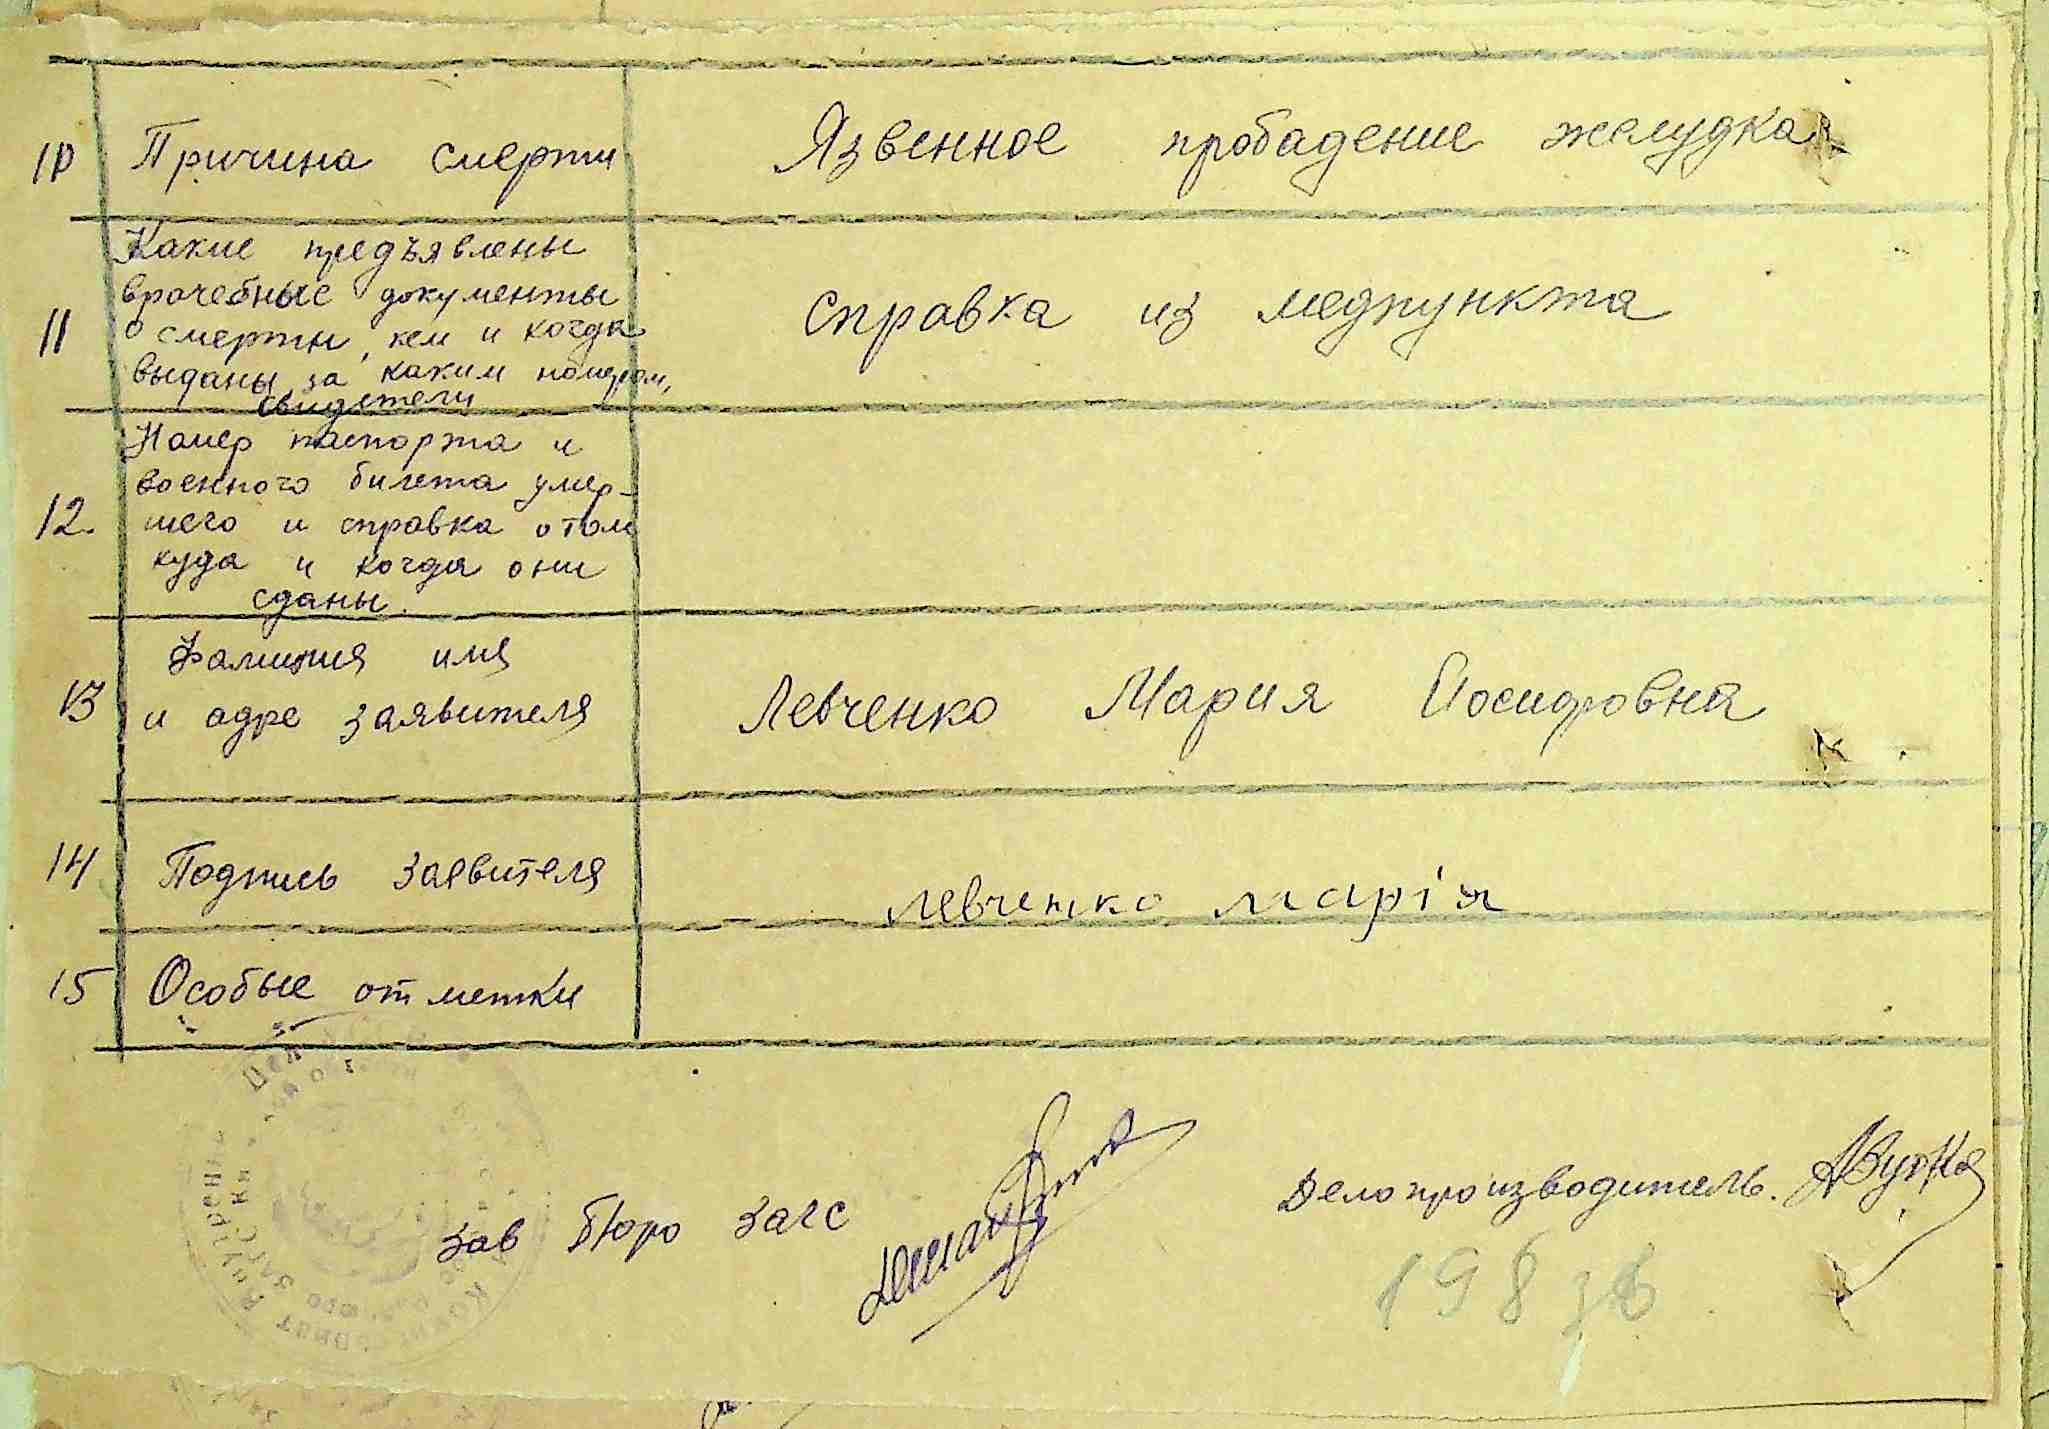 10 Причина смерти Язвенное пробадение желудка
Какие предъявлены
врачебные документы
11 о смерти, кем и когда справка из медпункта
выданы за каким номером,
свидетели
Номер паспорта и
военного билета умер-
12. шего и справка о том
куда и когда они
сданы.
Фамилия имя
13 и адре заявителя Левченко Мария Иосифовна
14 Подпись заявителя левченко марія
15 Особые отметки
Зав Бюро загс Делопроизводитель.
198